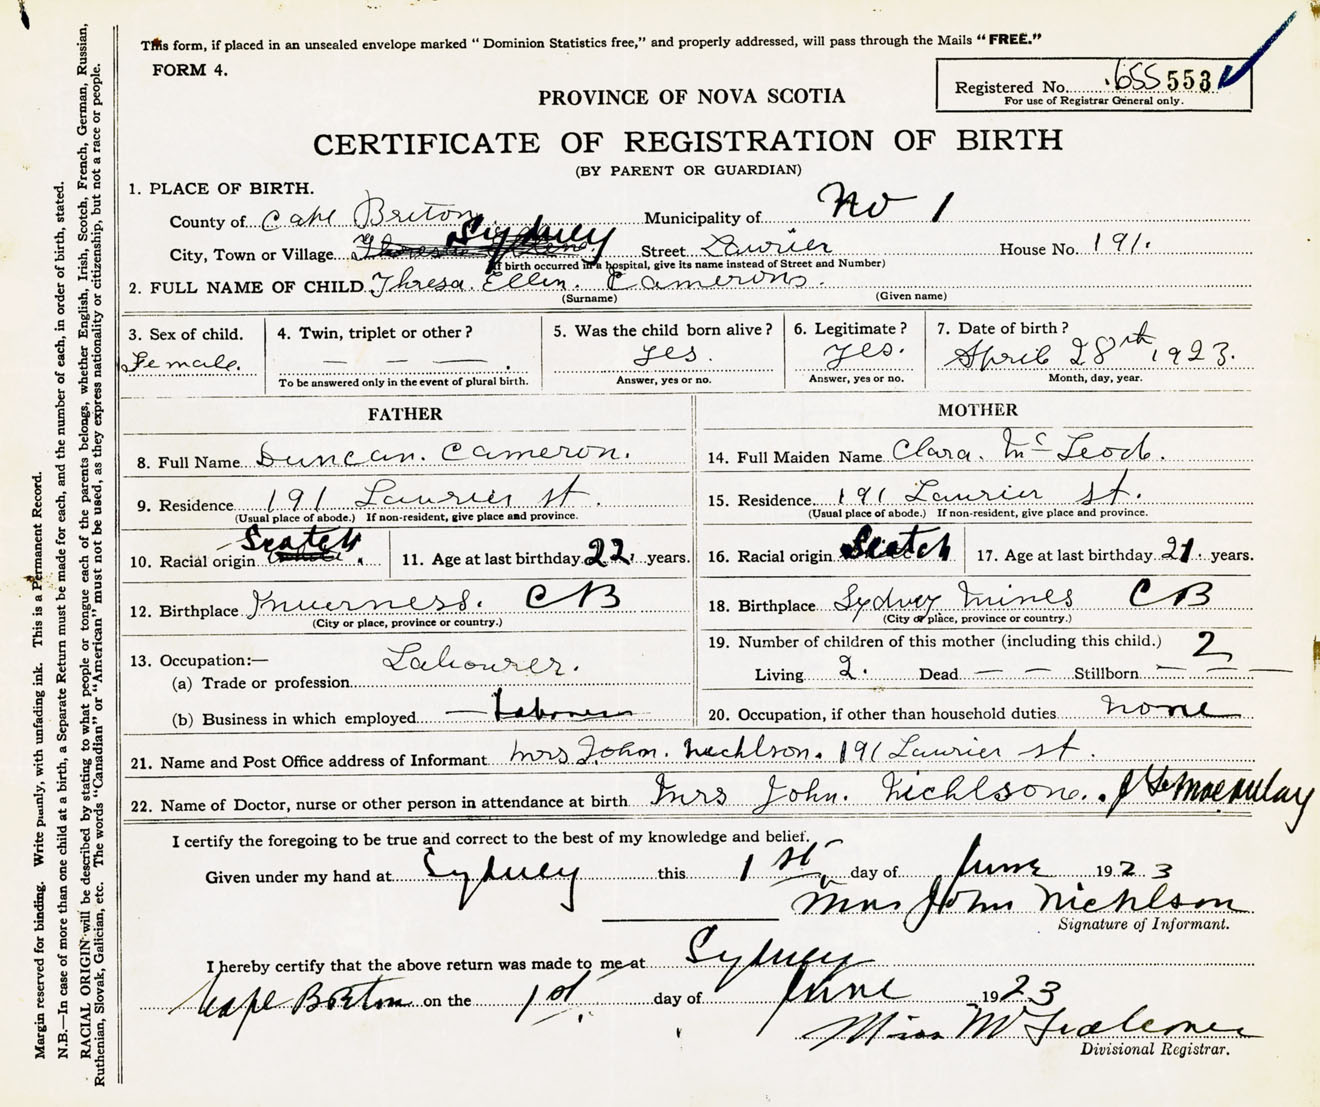 This form, if placed in an unsealed envelope marked "Dominion Statistics free," and properly addressed, will pass through the Mails "FREE."
FORM 4.
Registered No. 655 553
For use of Registrar General only.
PROVINCE OF NOVA SCOTIA
CERTIFICATE OF REGISTRATION OF BIRTH
(BY PARENT OR GUARDIAN)
1. PLACE OF BIRTH.
County of Cape Breton Municipality of No 1
City, Town or Village Sydney Street Laurier House No. 191.
(If birth occurred in a hospital, give its name instead of Street and Number)
2. FULL NAME OF CHILD Thresa. Ellen. Cameron.
(Surname) (Given name)
3. Sex of child. 4. Twin, triplet or other? 5. Was the child born alive? 6. Legitimate? 7. Date of birth?
Female. — — — yes. yes. April 28th 1923.
To be answered only in the event of plural birth. Answer, yes or no. Answer, yes or no. Month, day, year.
FATHER
8. Full Name Duncan. Cameron.
9. Residence 191 Laurier st.
(Usual place of abode.) If non-resident, give place and province.
10. Racial origin Scotch 11. Age at last birthday 22. years.
12. Birthplace Inverness. CB
(City or place, province or country.)
13. Occupation:— Labourer.
(a) Trade or profession
(b) Business in which employed — Laborer
MOTHER
14. Full Maiden Name Clara. McLeod.
15. Residence 191 Laurier st.
(Usual place of abode.) If non-resident, give place and province.
16. Racial origin Scotch 17. Age at last birthday 21. years.
18. Birthplace Sydney Mines CB
(City or place, province or country.)
19. Number of children of this mother (including this child.) 2
Living 2. Dead — — Stillborn — — —
20. Occupation, if other than household duties none
21. Name and Post Office address of Informant Mrs John. Nichlson. 191 Laurier st.
22. Name of Doctor, nurse or other person in attendance at birth Mrs John. Nichlson.
I certify the foregoing to be true and correct to the best of my knowledge and belief.
Given under my hand at Sydney this 1st day of June 1923
Mrs John Nichlson
Signature of Informant.
I hereby certify that the above return was made to me at Sydney
Cape Breton on the 1st day of June 1923
Miss
Divisional Registrar.
Margin reserved for binding. Write plainly, with unfading ink. This is a Permanent Record.
N.B.—In case of more than one child at a birth, a Separate Return must be made for each, and the number of each, in order of birth, stated.
RACIAL ORIGIN will be described by stating to what people or tongue each of the parents belongs, whether English, Irish, Scotch, French, German, Russian,
Ruthenian, Slovak, Galician, etc. The words "Canadian" or "American" must not be used, as they express nationality or citizenship, but not a race or people.